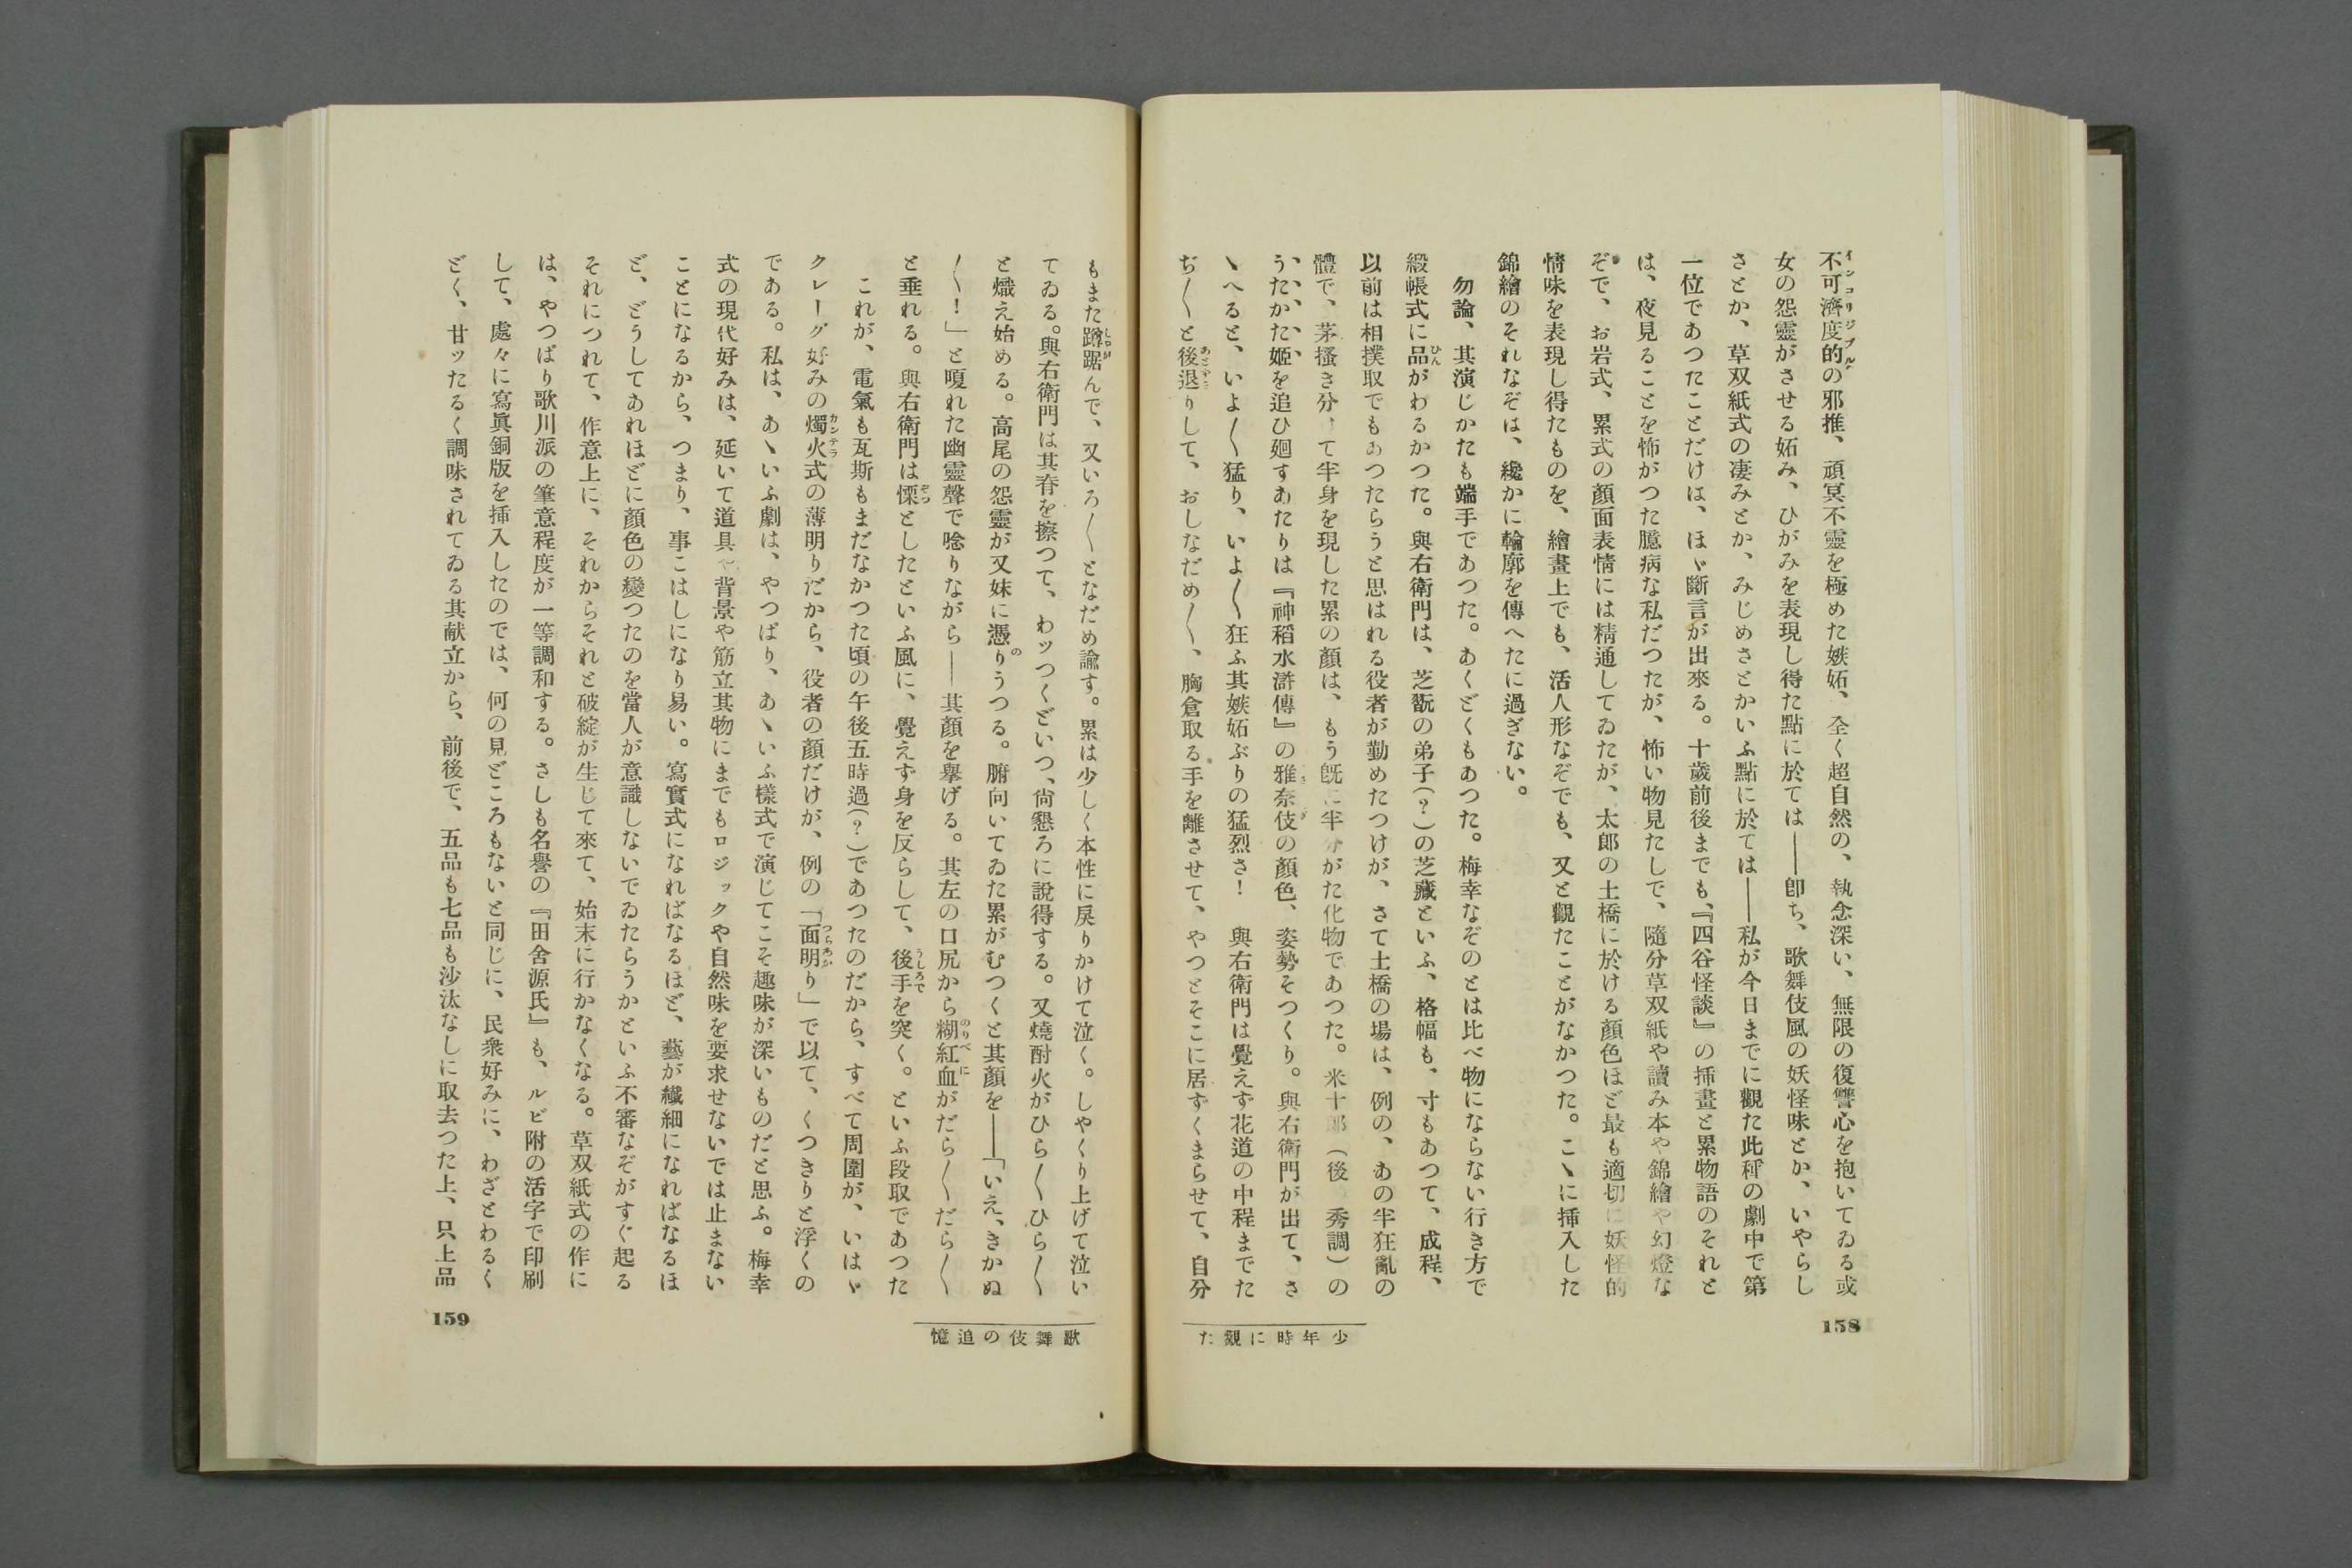 不可濟度的の邪推、頑冥不靈を極めた嫉妬、全く超自然の、執念深い、無限の復讐心を抱いてゐる或
女の怨靈がさせる妬み、ひがみを表現し得た點に於ては――卽ち、歌舞伎風の妖怪味とか、いやらし
さとか、草双紙式の凄みとか、みじめさとかいふ點に於ては――私が今日までに觀た此種の劇中で第
一位であつたことだけは、ほゞ斷言が出來る。十歲前後までも、『四谷怪談』の挿畫と累物語のそれと
は、夜見ることを怖がつた臆病な私だつたが、怖い物見たしで、隨分草双紙や讀み本や錦繪や幻燈な
ぞで、お岩式、累式の顏面表情には精通してゐたが、太郎の土橋に於ける顏色ほど最も適切に妖怪的
情味を表現し得たものを、繪畫上でも、活人形なぞでも、又と觀たことがなかつた。こゝに挿入した
錦繪のそれなぞは、纔かに輪廓を傳へたに過ぎない。
勿論、其演じかたも端手であつた。あくどくもあつた。梅幸なぞのとは比べ物にならない行き方で
緞帳式に品がわるかつた。與右衛門は、芝翫の弟子(?)の芝藏といふ、格幅も、寸もあつて、成程、
以前は相撲取でもあつたらうと思はれる役者が勤めたつけが、さて土橋の場は、例の、あの半狂亂の
體で、茅搔き分けて半身を現した累の顏は、もう旣に半分がた化物であつた。米十郎(後 秀調)の
うたかた姬を追ひ廻すあたりは『神稻水滸傳』の雅奈伎の顏色、姿勢そつくり。與右衛門が出て、さ
ゝへると、いよ〱猛り、いよ〱狂ふ其嫉妬ぶりの猛烈さ! 與右衛門は覺えず花道の中程までた
ぢ〱と後退りして、おしなだめ〱、胸倉取る手を離させて、やつとそこに居ずくまらせて、自分
158
少年時に觀た
もまた蹲踞んで、又いろ〱となだめ諭す。累は少しく本性に戾りかけて泣く。しやくり上げて泣い
てゐる。與右衛門は其脊を擦つて、わッつくどいつ、尙懇ろに說得する。又燒酎火がひら〱ひら〱
と熾え始める。高尾の怨靈が又妹に憑りうつる。腑向いてゐた累がむつくと其顏を――「いえ、きかぬ
〱!」と嗄れた幽靈聲で唸りながら――其顏を擧げる。其左の口尻から糊紅血がだら〱だら〱
と垂れる。與右衛門は慄としたといふ風に、覺えず身を反らして、後手を突く。といふ段取であつた
これが、電氣も瓦斯もまだなかつた頃の午後五時過(?)であつたのだから、すべて周圍が、いはゞ
クレーグ好みの燭火式の薄明りだから、役者の顏だけが、例の「面明り」で以て、くつきりと浮くの
である。私は、あゝいふ劇は、やつぱり、あゝいふ樣式で演じてこそ趣味が深いものだと思ふ。梅幸
式の現代好みは、延いて道具や背景や筋立其物にまでもロジックや自然味を要求せないでは止まない
ことになるから、つまり、事こはしになり易い。寫實式になればなるほど、藝が纎細になればなるほ
ど、どうしてあれほどに顏色の變つたのを當人が意識しないでゐたらうかといふ不審なぞがすぐ起る
それにつれて、作意上に、それからそれと破綻が生じて來て、始末に行かなくなる。草双紙式の作に
は、やつぱり歌川派の筆意程度が一等調和する。さしも名譽の『田舍源氏』も、ルビ附の活字で印刷
して、處々に寫眞銅版を挿入したのでは、何の見どころもないと同じに、民衆好みに、わざとわるく
どく、甘ッたるく調味されてゐる其献立から、前後で、五品も七品も沙汰なしに取去つた上、只上品
159
歌舞伎の追憶